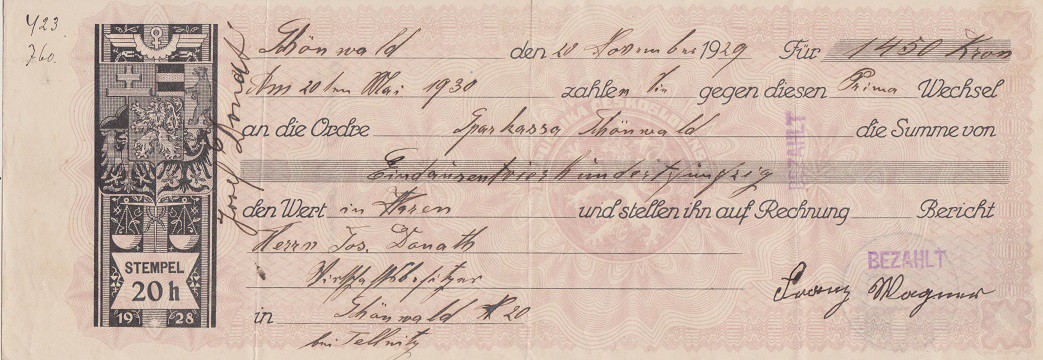 423
760.
Schönwald den 20 November 1929 Für 1450 Kron
Am 20ten Mai 1930 zahlen Sie gegen diesen Prima Wechsel
an die Ordre Sparkassa Schönwald die Summe von
Eintausendvierhundertfünfzig
den Wert in und stellen ihn auf Rechnung Bericht
Herrn Jos. Donath
Wirtschaftsbesitzer
in Schönwald 20
bei Tellnitz
Franz Wagner
BEZAHLT
BEZAHLT
Josef
STEMPEL
20 h
19 28
REPUBLIKA ČESKOSLOVENSKÁ